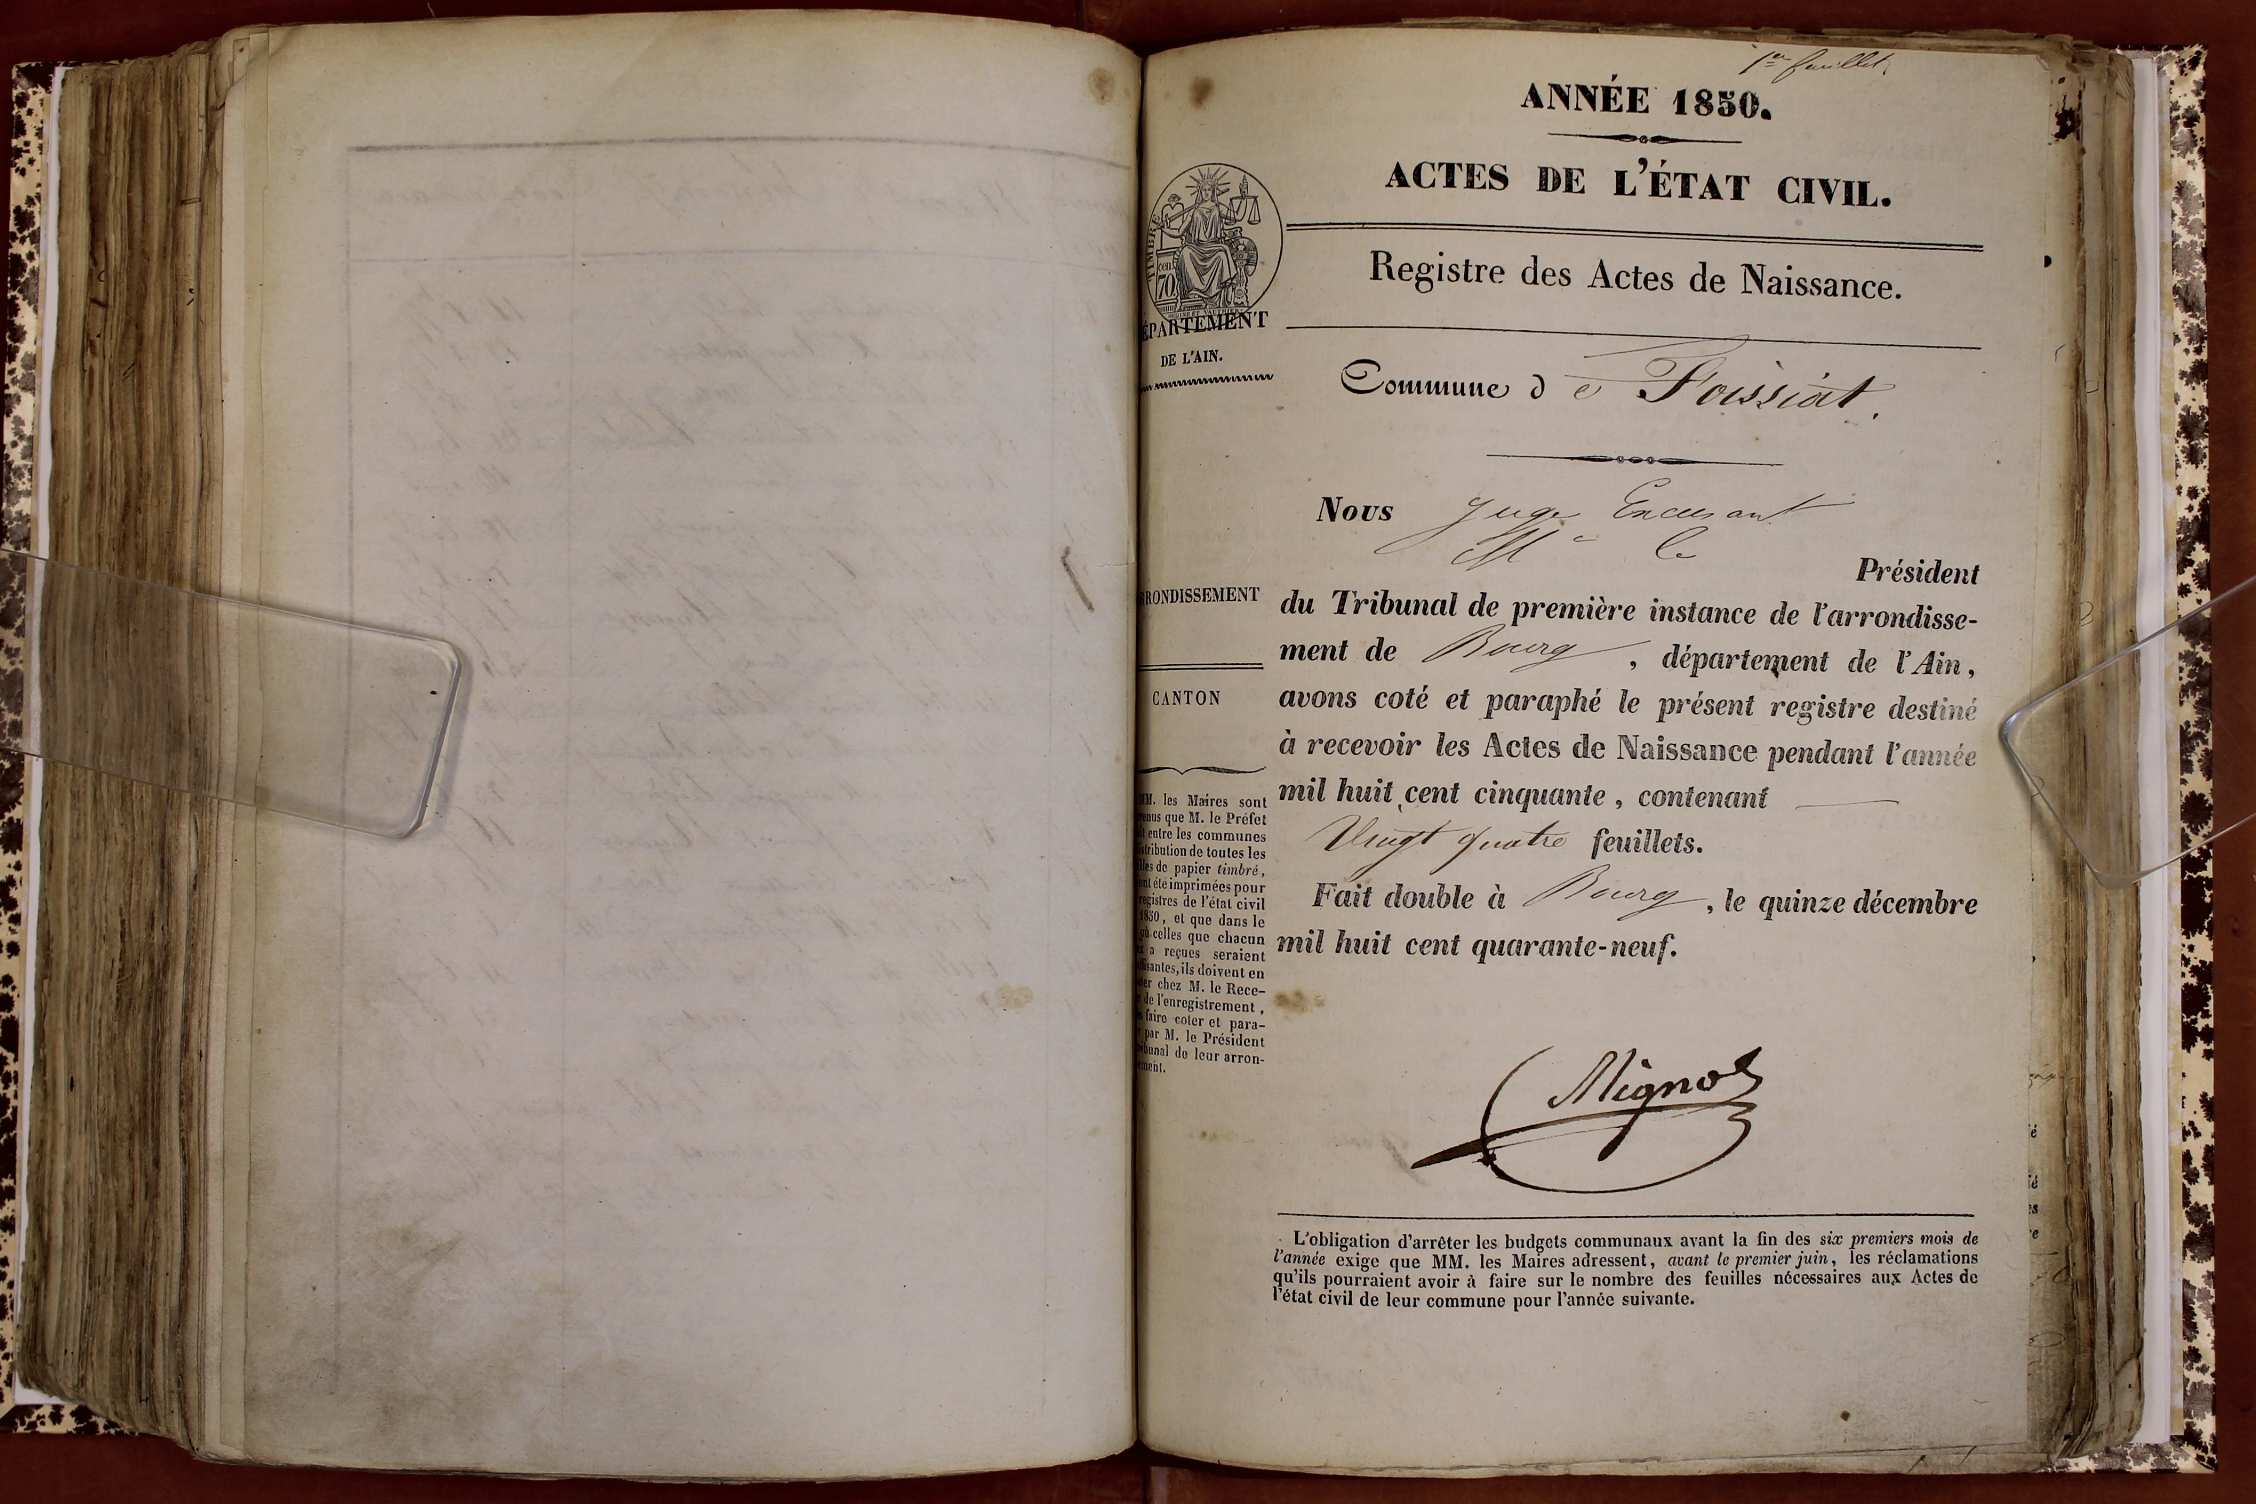 1er feuillet
ANNÉE 1850.
ACTES DE L'ÉTAT CIVIL.
TIMBRE
cen.
70
Registre des Actes de Naissance.
ÉPARTEMENT
DE L'AIN.
Commune de Foissiat.
Nous Juge Excusant
Mr le
Président
RRONDISSEMENT
du Tribunal de première instance de l'arrondisse-
ment de Bourg, département de l'Ain,
CANTON
avons coté et paraphé le présent registre destiné
à recevoir les Actes de Naissance pendant l'année
mil huit cent cinquante, contenant
Vingt quatre feuillets.
Fait double à Bourg, le quinze décembre
mil huit cent quarante-neuf.
MM. les Maires sont
enus que M. le Préfet
it entre les communes
stribution de toutes les
illes de papier timbré,
ont été imprimées pour
registres de l'état civil
1850, et que dans le
où celles que chacun
x a reçues seraient
ffisantes, ils doivent en
ter chez M. le Rece-
r de l'enregistrement,
s faire coter et para-
r par M. le Président
ibunal de leur arron-
ement.
Mignot
L'obligation d'arrêter les budgets communaux avant la fin des six premiers mois de
l'année exige que MM. les Maires adressent, avant le premier juin, les réclamations
qu'ils pourraient avoir à faire sur le nombre des feuilles nécessaires aux Actes de
l'état civil de leur commune pour l'année suivante.